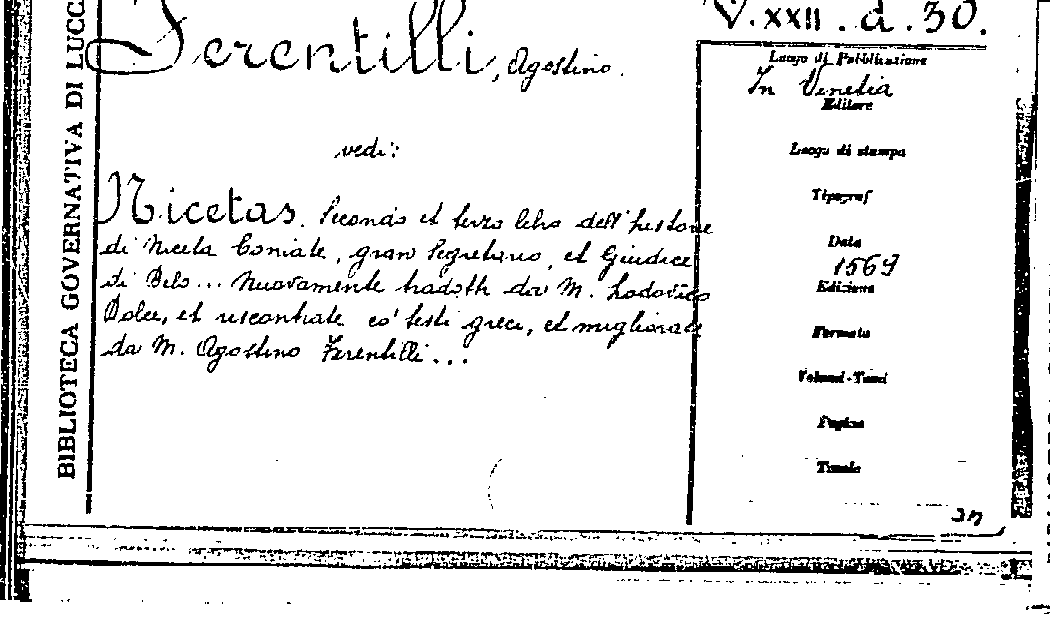 BIBLIOTECA GOVERNATIVA DI LUCC
Ferentilli, Agostino.
V. XXII. d. 30.
vedi:
Nicetas. Secondo et terzo libro dell'historie
di Niceta Coniate, gran Segretario, et Giudice
di Belo... Nuovamente tradotte da M. Lodovico
Dolce, et riscontrate co' testi greci, et migliorate
da M. Agostino Ferentilli...
Luogo di Pubblicazione
In Venetia
Editore
Luogo di stampa
Tipograf
Data
1569
Edizione
Formato
Volumi-Tomi
Pagine
Tavole